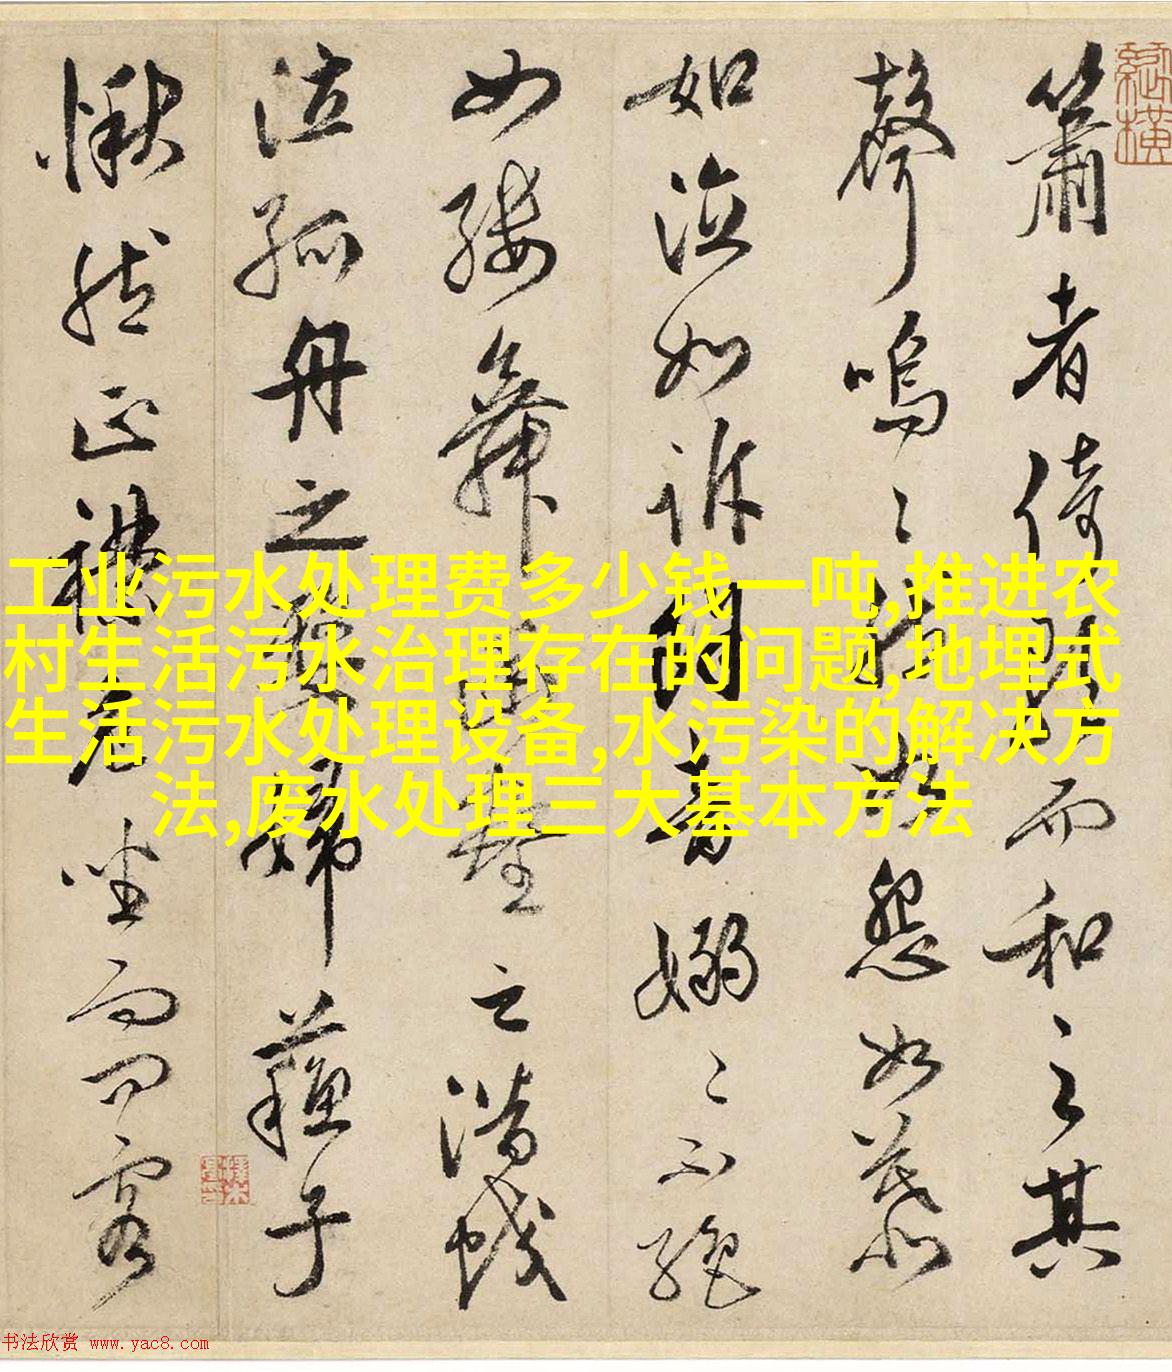 簫者倚歌而和之其
聲嗚々然如怨如慕
如泣如訴餘音嫋々不絕
如縷舞幽壑之潛蛟
泣孤舟之嫠婦蘇子
愀然正襟危坐而問客
工业污水处理费多少钱一吨,推进农
村生活污水治理存在的问题,地埋式
生活污水处理设备,水污染的解决方
法,废水处理三大基本方法
书法欣赏 www.yac8.com